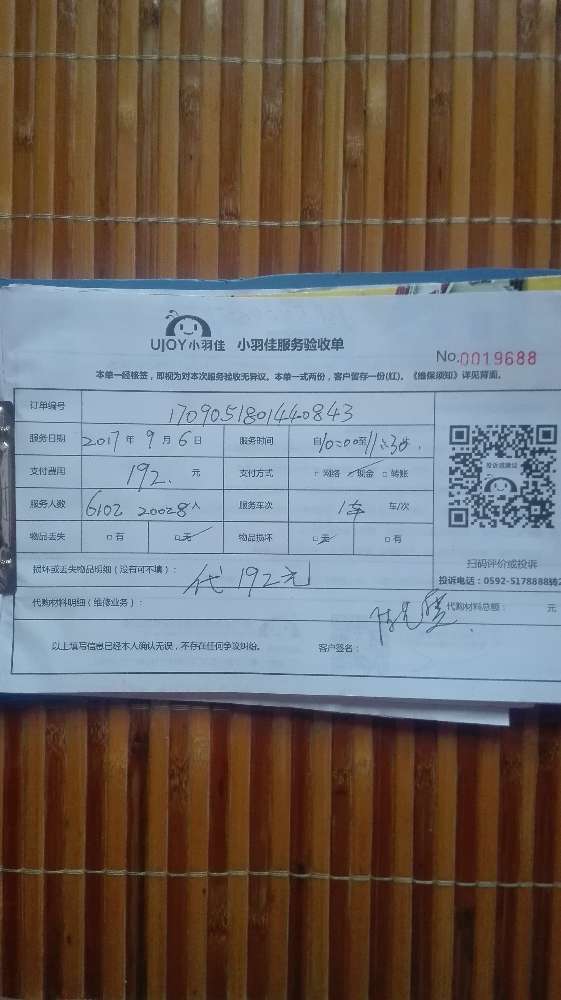 UJOY小羽佳 小羽佳服务验收单
No.0019688
本单一经核签，即视为对本次服务验收无异议。本单一式两份，客户留存一份(红)。《维保须知》详见背面。
订单编号 1709051801440843
服务日期 2017年9月6日 服务时间 自10:00至11:30
支付费用 192.元 支付方式 □网络 现金 □转账
服务人数 6102 20028人 服务车次 1车 车/次
物品丢失 □有 □无 物品损坏 □无 □有
投诉或建议
扫码评价或投诉
损坏或丢失物品明细（没有可不填）： 代192元
投诉电话：0592-5178888转2
代购材料明细（维修业务）： 代购材料总额： 元
以上填写信息已经本人确认无误，不存在任何争议纠纷。 客户签名：